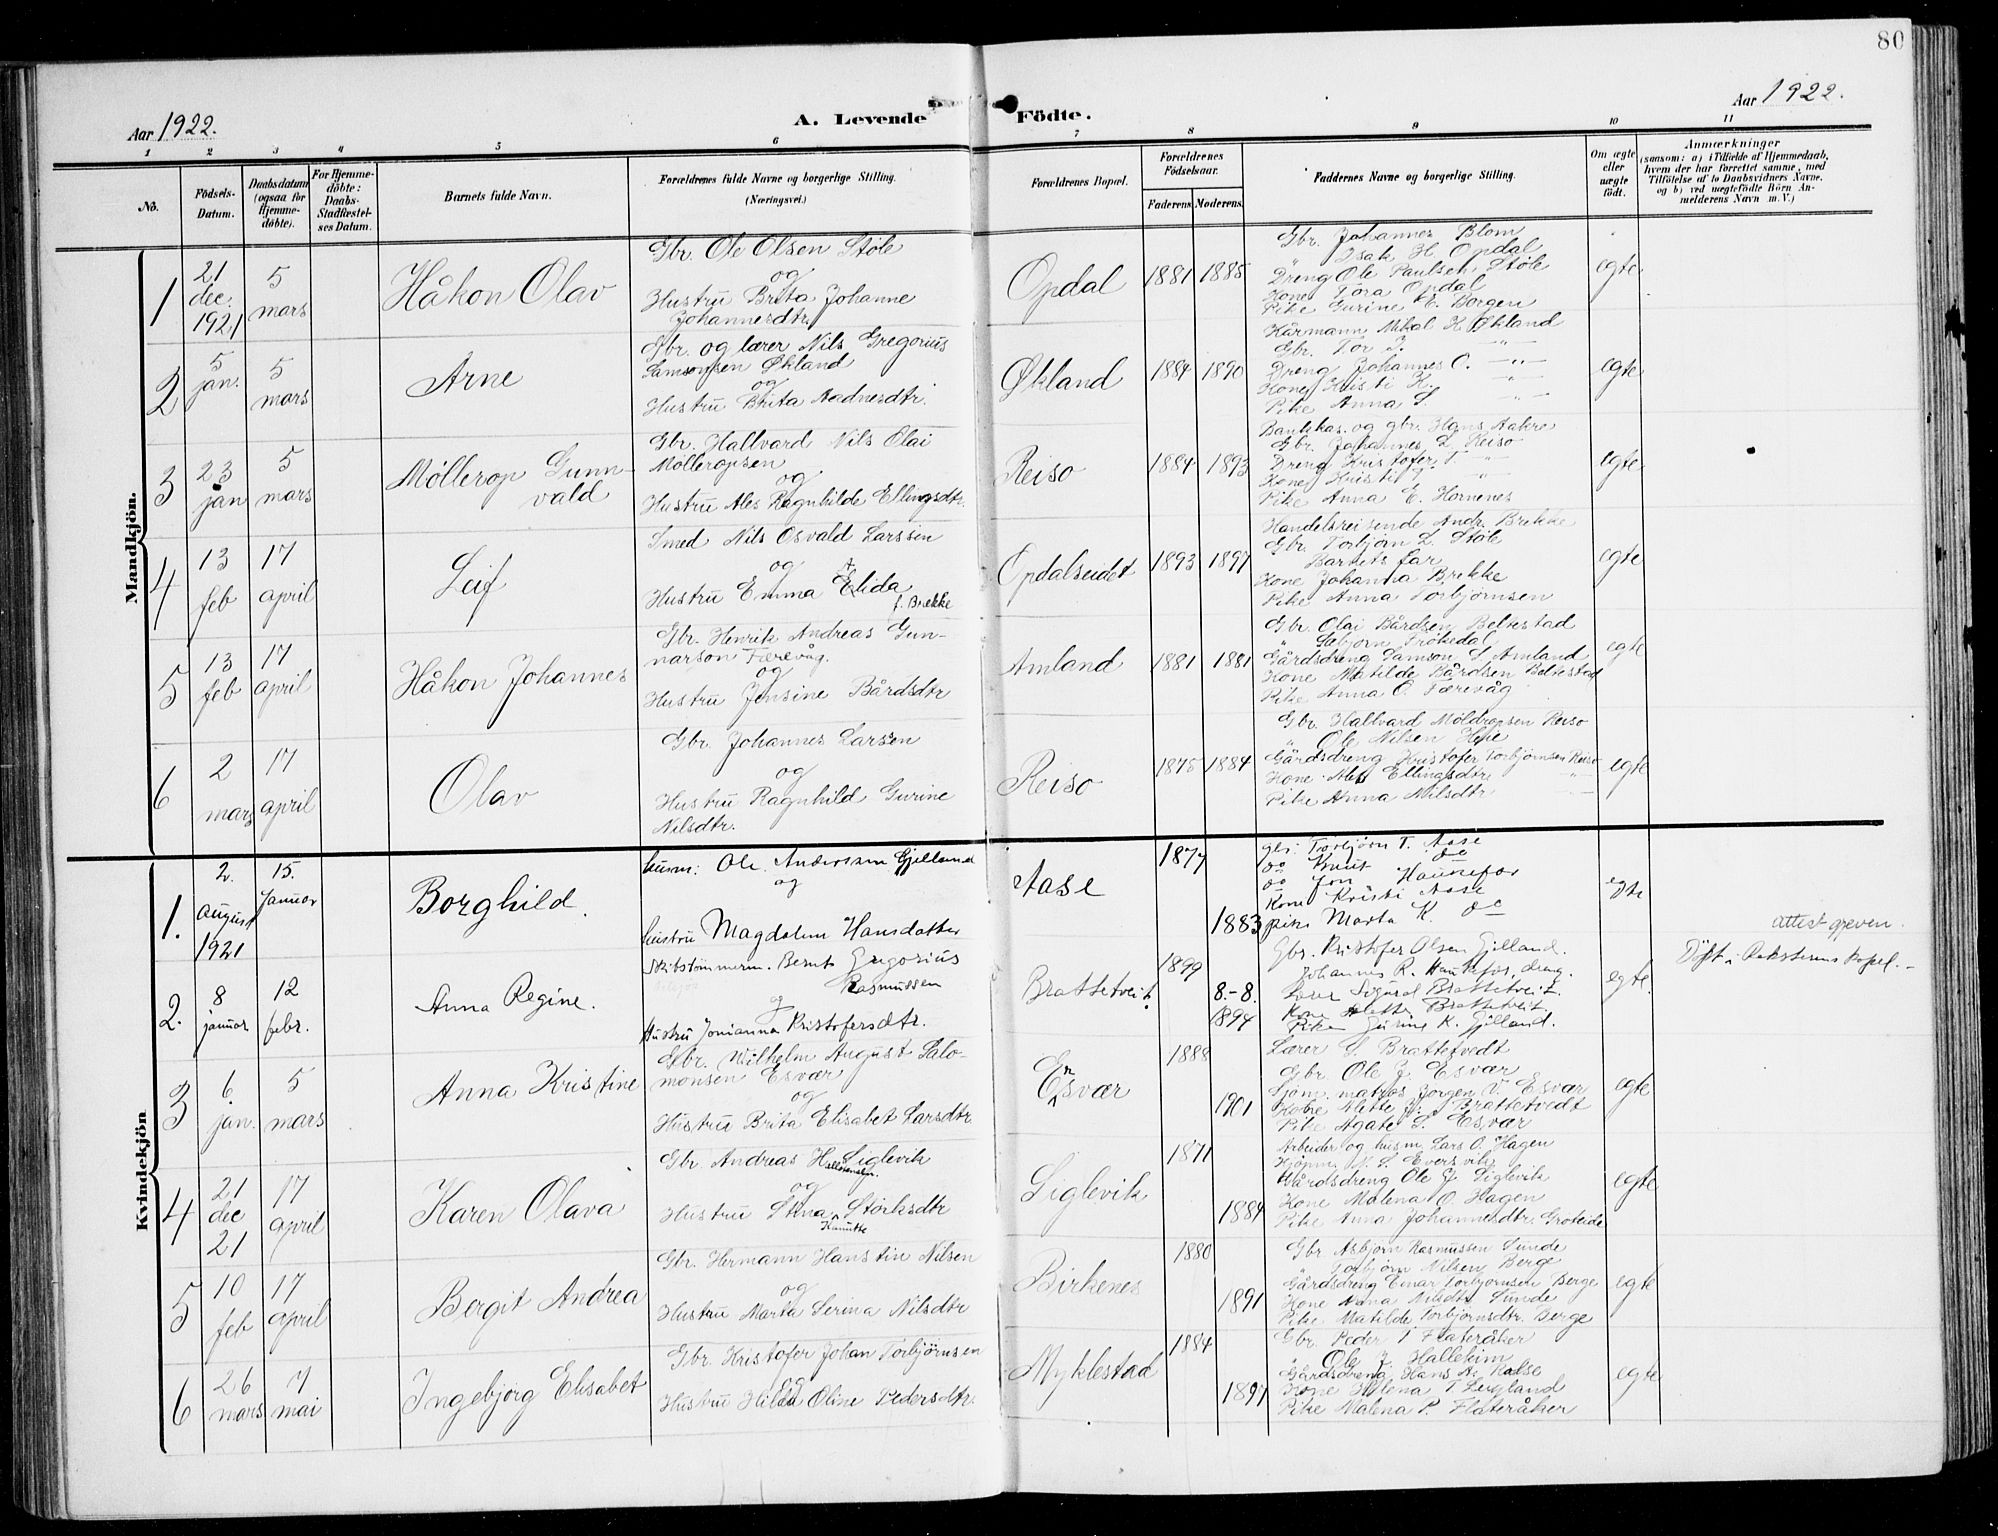 80
Aar 1922.
A. Levende Födte.
Aar 1922.
1 2 3 4 5 6 7 8 9 10 11
No.
Födsels-Datum.
Daabsdatum (ogsaa for Hjemme-døbte).
For Hjemme-døbte: Daabs-Stadfæstel-ses Datum.
Barnets fulde Navn.
Forældrenes fulde Navne og borgerlige Stilling.
(Næringsvei.)
Forældrenes Bopæl.
Forældrenes Födselsaar.
Faderens. Moderens.
Faddernes Navne og borgerlige Stilling.
Om ægte eller uægte født.
Anmærkninger
(saasom: a) i Tilfælde af Hjemmedaab, hvem der har forrettet samme, med Tilföielse af to Daabsvidners Navne, og b) ved uægtefödte Börn An-melderens Navn m. V.)
Mandkjön.
1
21 dec. 1921
5 mars
Håkon Olav
Gbr. Ole Olsen Støle
og
Hustru Brita Johanne
Johannesdtr.
Opdal
1881 1885
Gbr. Johannes Blom
" Isak H. Opdal
Dreng Ole Paulsen Støle
Kone Tora Opdal
Pike Gurine E. Borgen
egte
2
5 jan.
5 mars
Arne
Gbr. og lærer Nils Gregorius
Samsonsen Økland
og
Hustru Brita Aadnesdtr.
Økland
1884 1890
Kårmann Mikal H. Økland
Gbr. Tor J. -"-
Dreng Johannes O. -"-
Kone Kristi K. -"-
Pike Anna S. -"-
egte
3
23 jan
5 mars
Møllerop Gunn-
vald
Gbr. Hallvard Nils Olai
Mølleropsen
og
Hustru Ales Ragnhilde Ellingsdtr.
Reiso
1884 1893
Bankkas. og gbr. Hans Aakre
Gbr. Johannes L. Reiso
Dreng Kristofer T. "
Kone Kristi T. "
Pike Anna E. Hornenes
egte
4
13 feb
17 april
Leif
Smed Nils Osvald Larssen
og
Hustru Emma Elida
f. Brekke
Opdalseidet
1893 1897
Handelsreisende Andr. Brekke
Gbr. Torbjørn L. Støle
Barnets far
Kone Johanna Brekke
Pike Anna Torbjørnsen
egte
5
13 feb
17 april
Håkon Johannes
Gbr. Henrik Andreas Gun-
narson Færevåg.
og
Hustru Jensine Bårdsdtr
Amland
1881 1881
Gbr. Olai Bårdsen Beltestad
" Sæbjørn Frøkedal
Gårdsdreng Samson S. Amland
Kone Matilde Bårdsen Beltestad
Pike Anna O. Færevåg
egte
6
2 mars
17 april
Olav
Gbr. Johannes Larsen
og
Hustru Ragnhild Gurine
Nilsdtr.
Reiso
1875 1884
Gbr. Hallvard Möldropsen Reiso
" Ole Nilsen Hope
Gårdsdreng Kristofer Torbjørnsen Reiso
Kone Ales Ellingsdtr "
Pike Anna Nilsdtr "
egte
Kvindekjön
1.
2. august 1921
15. Januar
Borghild.
husm: Ole Anderssen Gjelland
og
hustru Magdalen Hansdatter
Aase
1877
1883
gbr: Torbjørn T. Aase
do Knut do
do Jon Haukefær
Kone Kristi Aase
pike Marta K. do
egte
2.
8 januar.
12 febr.
Anna Regine.
Skibstømmerm. Bernt Gregorius
Rasmussen
og
Hustru Jonianna Kristofersdtr.
Brattetveit.
1899
8.-8.
1894
Gbr. Kristofer Olsen Gjelland.
Johannes R. Haukefær, dreng.
Lærer Sigurd Brattetveit.
Kone Mette Brattetveit
Pike Gurine K. Gjelland.
egte.
attest greven.
Döpt i Kapel.
3
6 jan.
5 mars
Anna Kristine
Gbr. Wilhelm August Salo-
monsen Esvær
og
Hustru Brita Elisabet Larsdtr.
Ensvær
1888
1901
Lærer S. Brattetvedt
Gbr. Ole J. Esvær
Sjøm. matros Jørgen V. Esvær
Kone Mette M. Brattetvedt
Pike Agate S. Esvær
egte
4
21 dec 21
17 april
Karen Olava
Gbr. Andreas H Siglevik
og
Hustru Stina Størksdtr
Siglevik
1871
1884
Arbeider og husm. Lars O. Hagen
Kjøpm. N. S. Eversvik
Gårdsdreng Ole J. Siglevik
Kone Malena O. Hagen
Pike Anna Johannesdtr. Groteide
egte
5
10 feb
17 april
Borgit Andrea
Gbr. Hermann Hanstin Nilsen
og
Hustru Marta Serina Nilsdtr
Birkenes
1880
1891
Gbr Asbjørn Rasmussen Sunde
" Torbjørn Nilsen Berge
Gårdsdreng Einar Torbjørnsen Berge
Kone Nana Nilsdtr. Sunde
Pike Matilde Torbjørnsdtr. Berge
egte
6
26 mars
7 mai
Ingebjörg Elisabet
Gbr. Kristofer Johan Torbjørnsen
og
Hustru Hilda Oline Pedersdtr.
Myklestad
1884
1897
Gbr. Peder T. Flateråker
" Ole J. Halleim
Gårdsdreng Hans A. Kalse
Kone Helena T. Lexland
Pike Malena P. Flateråker
egte